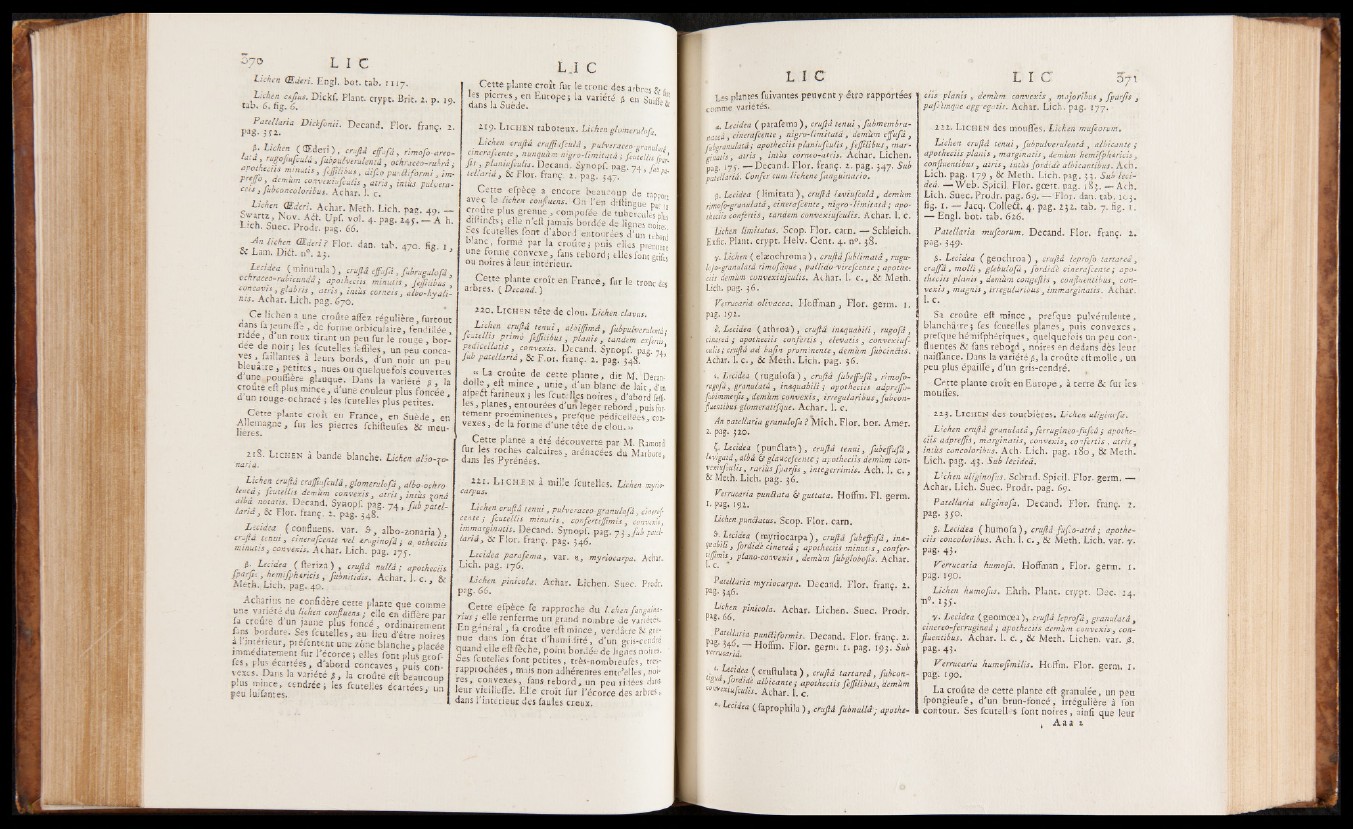 370 L I C
Lichen Œderi. Engl. bot. tab. 1117.
Lichen cæsius. Dickf. Plant. crypt. Brit. 2. p. 19.
tab. 6. fig. 6.
Patellaria Dicksonii. Decand. Flor. franç. 2.
pag. 352.
β. Lichen (Œderi), crustâ effusâ, rimoso-areo-
latâ, rugosiusculâ, subpulverulentâ, ochraceo-rubrâ;
apotheciis minutis, sessilibus, disco punctiformi, im-
presso, demùm convexiusculis, atris, intùs pulvera-
ceis, subconcoloribus. Achar. l. c.
Lichen Œderi. Achar. Meth. Lich. pag. 49. —
Swartz, Nov. Act. Upf. vol. 4. pag. 245. — Ach.
Lich. Suec. Prodr. pag. 66.
An lichen Œderi? Flor. dan. tab. 470. fig. 1,
& Lam. Dict. n°. 23.
Lecidea (minutula), crustâ effusâ, subrugulosâ,
ochraceo-rubicundâ; apotheciis minutis, sessilibus,
concavis, glabris, atris, intùs corneis, albo-hyali-
nis. Achar. Lich. pag. 670.
Ce lichen a une croûte assez régulière, surtout
dans sa jeunesse, de forme orbiculaire, fendillée,
ridée, d'un roux tirant un peu sur le rouge, bor-
dée de noir; les scutelles sessiles, un peu conca-
ves, saillantes à leurs bords, d'un noir un peu
bleuâtre, petites, nues ou quelquefois couvertes
d'une poussière glauque. Dans la variété β, la
croûte est plus mince, d'une couleur plus foncée,
d'un rouge-ochracé; les scutelles plus petites.
Cette plante croît en France, en Suède, en
Allemagne, sur les pierres schisteuses & meu-
lières.
218. LICHEN à bande blanche. Lichen albo-zo-
naria.
Lichen crustâ crassiusculâ, glomerulosâ, albo-ochro
leucâ; scutellis demùm convexis, atris, intùs zonâ
albâ notatis. Decand. Synops. pag. 74, sub patel-
lariâ, & Flor. franç. 2. pag. 348.
Lecidea (confluens. var. δ, albo-zonaria),
crustâ tenui, cinerascente vel eruginosâ; apotheciis
minutis, convexis. Achar. Lich. pag. 175.
β. Lecidea (steriza), crustâ nullâ; apotheciis
sparsis, hemisphericis, subnitidis. Achar. l. c., &
Meth. Lich. pag. 40.
Acharius ne considère cette plante que comme
une variété du lichen confluens; elle en diffère par
sa croûte d'un jaune plus foncé, ordinairement
sans bordure. Ses scutelles, au lieu d'être noires
à l'intérieur, présentent une zône blanche, placée
immédiatement sur l'écorce; elles sont plus gros-
ses, plus écartées, d'abord concaves, puis con-
vexes. Dans la variété β, la croûte est beaucoup
plus mince, cendrée; les scutelles écartées, un
peu luisantes.
L I C
Cette plante croît sur le tronc des arbres & sur
les pierres, en Europe; la variété β en Suisse &
dans la Suède.
219. LICHEN raboteux. Lichen glomerulosa.
Lichen crustâ crassiusculâ, pulveraceo-granulatâ,
cinerascente, nunquàm nigro-limitatâ; scutellis spar-
sis, planiusculis. Decand. Synops. pag. 74, sub pa-
tellariâ, & Flor. franç. 2. pag. 347.
Cette espèce a encore beaucoup de rapport
avec le lichen confluens. On l'en distingue par sa
croûte plus grenue, composée de tubercules plus
distincts; elle n'est jamais bordée de lignes noires.
Ses scutelles sont d'abord entourées d'un rebord
blanc, formé par la croûte; puis elles prennent
une forme convexe, sans rebord; elles sont grises
ou noires à leur intérieur.
Cette plante croît en France, sur le tronc des
arbres. (Decand.)
220. LICHEN tête de clou. Lichen clavus.
Lichen crustâ tenui, albissimâ, subpulverulentâ;
scutellis primò sessilibus, planis, tandem exsertis,
pedicellatis, convexis. Decand. Synops. pag. 74,
sub patellariâ, & Flor. franç. 2. pag. 348.
« La croûte de cette plante, dit M. Decan-
dolle, est mince, unie, d'un blanc de lait, d'un
aspect farineux; les scutelles noires, d'abord sessi-
les, planes, entourées d'un léger rebord, puis for-
tement proéminentes, presque pédicellées, con-
vexes, de la forme d'une tête de clou. »
Cette plante a été découverte par M. Ramond
sur les roches calcaires, arénacées du Marboré,
dans les Pyrénées.
221. LICHEN à mille scutelles. Lichen myrio-
carpus.
Lichen crustâ tenui, pulveraceo-granulosâ, cineras-
cente; scutellis minutis, confertissimis, convexis,
immarginatis. Decand. Synops. pag. 73, sub patel-
lariâ, & Flor. franç. pag. 346.
Lecidea parasema, var. η, myriocarpa. Achar.
Lich. pag. 176.
Lichen pinicola. Achar. Lichen. Suec. Prodr.
pag. 66.
Cette espèce se rapproche du lichen sanguina-
rius; elle renferme un grand nombre de variétés.
En général, sa croûte est mince, verdâtre & gre-
nue dans son état d'humidité, d'un gris-cendré
quand elle est sèche, point bordée de lignes noires.
Ses scutelles sont petites, très-nombreuses, très-
rapprochées, mais non adhérentes entr'elles, noi-
res, convexes, sans rebord, un peu ridées dans
leur vieillesse. Elle croît sur l'écorce des arbres,
dans l'intérieur des saules creux.
L I C
Les plantes suivantes peuvent y être rapportées
comme variétés.
α. Lecidea (parasema), crustâ tenui, submembra-
naceâ, cinerascente, nigro-limitatâ, demùm effusâ,
subgranulatâ; apotheciis planiusculis, sessilibus, mar-
ginatis, atris, intùs corneo-atris. Achar. Lichen.
pag. 175. — Decand. Flor. franç. 2. pag. 347. Sub
patellariâ. Confer cum lichene sanguinario.
β. Lecidea (limitata), crustâ leviusculâ, demùm
rimoso-granulatâ, cinerascente, nigro-limitatâ; apo-
theciis confertis, tandem convexiusculis. Achar. l. c.
Lichen limitatus. Scop. Flor. carn. — Schleich.
Exsic. Plant. crypt. Helv. Cent. 4. n°. 38.
γ. Lichen (elæochroma), crustâ sublimatâ, rugu-
loso-granulatâ rimosâque, pallido-virescente; apothe-
ciis demùm convexiusculis. Achar. l. c., & Meth.
Lich. pag. 36.
Verrucaria olivacea. Hoffman, Flor. germ. 1.
pag. 192.
δ. Lecidea (athroa), crustâ inequabili, rugosâ,
cinereâ; apotheciis confertis, elevatis, convexius-
culis; crustâ ad basin prominente, demùm subcinctis.
Achar. l. c., & Meth. Lich. pag. 36.
ε. Lecidea (rugulosa), crustâ subeffusâ, rimoso-
rugosâ, granulatâ, inequabili; apotheciis adpresso-
subimmersis, demùm convexis, irregularibus, subcon-
fluentibus glomeratisque. Achar. l. c.
An patellaria granulosa? Mich. Flor. bor. Amer.
2. pag. 320.
ζ. Lecidea (punctata), crustâ tenui, subeffusâ,
levigatâ, albâ & glaucescente; apotheciis demùm con-
vexiusculis, rariùs sparsis, integerrimis. Ach. l. c.,
& Meth. Lich. pag. 36.
Verrucaria punctata & guttata. Hoffm. Fl. germ.
1. pag. 192.
Lichen punctatus. Scop. Flor. carn.
θ. Lecidea (myriocarpa), crustâ subeffusâ, ine-
quabili, sordidè cinereâ; apotheciis minutis, confer-
tissimis, plano-convexis, demùm subglobosis. Achar.
l. c.
Patellaria myriocarpa. Decand. Flor. franç. 2.
pag. 346.
Lichen pinicola. Achar. Lichen. Suec. Prodr.
pag. 66.
Patellaria punctiformis. Decand. Flor. franç. 2.
pag. 346. — Hoffm. Flor. germ. 1. pag. 193. Sub
verrucariâ.
ι. Lecidea (crustulata), crustâ tartareâ, subcon-
tiguâ, sordidè albicante; apotheciis sessilibus, demùm
convexiusculis. Achar. l. c.
κ. Lecidea (saprophila), crustâ subnullâ; apothe-
L I C 371
ciis planis, demùm convexis, majoribus, sparsis,
passimque aggregatis. Achar. Lich. pag. 177.
222. LICHEN des mousses. Lichen muscorum.
Lichen crustâ tenui, subpulverulentâ, albicante;
apotheciis planis, marginatis, demùm hemisphericis,
confluentibus, atris, intùs sordidè albicantibus. Ach.
Lich. pag. 179, & Meth. Lich. pag. 33. Sub leci-
deâ. — Web. Spicil. Flor. gœtt. pag. 183. — Ach.
Lich. Suec. Prodr. pag. 69. — Flor. dan. tab. 103.
fig. 1. — Jacq. Collect. 4. pag. 232. tab. 7. fig. 1.
— Engl. bot. tab. 626.
Patellaria muscorum. Decand. Flor. franç. 2.
pag. 349.
β. Lecidea (geochroa), crustâ leproso tartareâ,
crassâ, molli, glebulosâ, sordidè cinerascente; apo-
theciis planis, demùm congestis, confluentibus, con-
vexis, magnis, irregularibus, immarginatis. Achar.
l. c.
Sa croûte est mince, presque pulvérulente,
blanchâtre; ses scutelles planes, puis convexes,
presque hémisphériques, quelquefois un peu con-
fluentes & sans rebord, noires en dedans dès leur
naissance. Dans la variété β, la croûte est molle, un
peu plus épaisse, d'un gris-cendré.
Cette plante croît en Europe, à terre & sur les
mousses.
223. LICHEN des tourbières. Lichen uliginosa.
Lichen crustâ granulatâ, ferrugineo-fuscâ; apothe-
ciis adpressis, marginatis, convexis, confertis, atris,
intùs concoloribus. Ach. Lich. pag. 180, & Meth.
Lich. pag. 43. Sub lecideâ.
Lichen uliginosus. Schrad. Spicil. Flor. germ. —
Achar. Lich. Suec. Prodr. pag. 69.
Patellaria uliginosa. Decand. Flor. franç. 2.
pag. 350.
β. Lecidea (humosa), crustâ fusco-atrâ; apothe-
ciis concoloribus. Ach. l. c., & Meth. Lich. var. γ.
pag. 43.
Verrucaria humosa. Hoffman, Flor. germ. 1.
pag. 190.
Lichen humosus. Ehrh. Plant. crypt. Dec. 24.
n°. 135.
γ. Lecidea (geomœa), crustâ leprosâ, granulatâ,
cinereo-ferrugineâ; apotheciis demùm convexis, con-
fluentibus. Achar. l. c., & Meth. Lichen. var. β.
pag. 43.
Verrucaria humosimilis. Hoffm. Flor. germ. 1.
pag. 190.
La croûte de cette plante est granulée, un peu
spongieuse, d'un brun-foncé, irrégulière à son
contour. Ses scutelles sont noires, ainsi que leur
Aaa 2